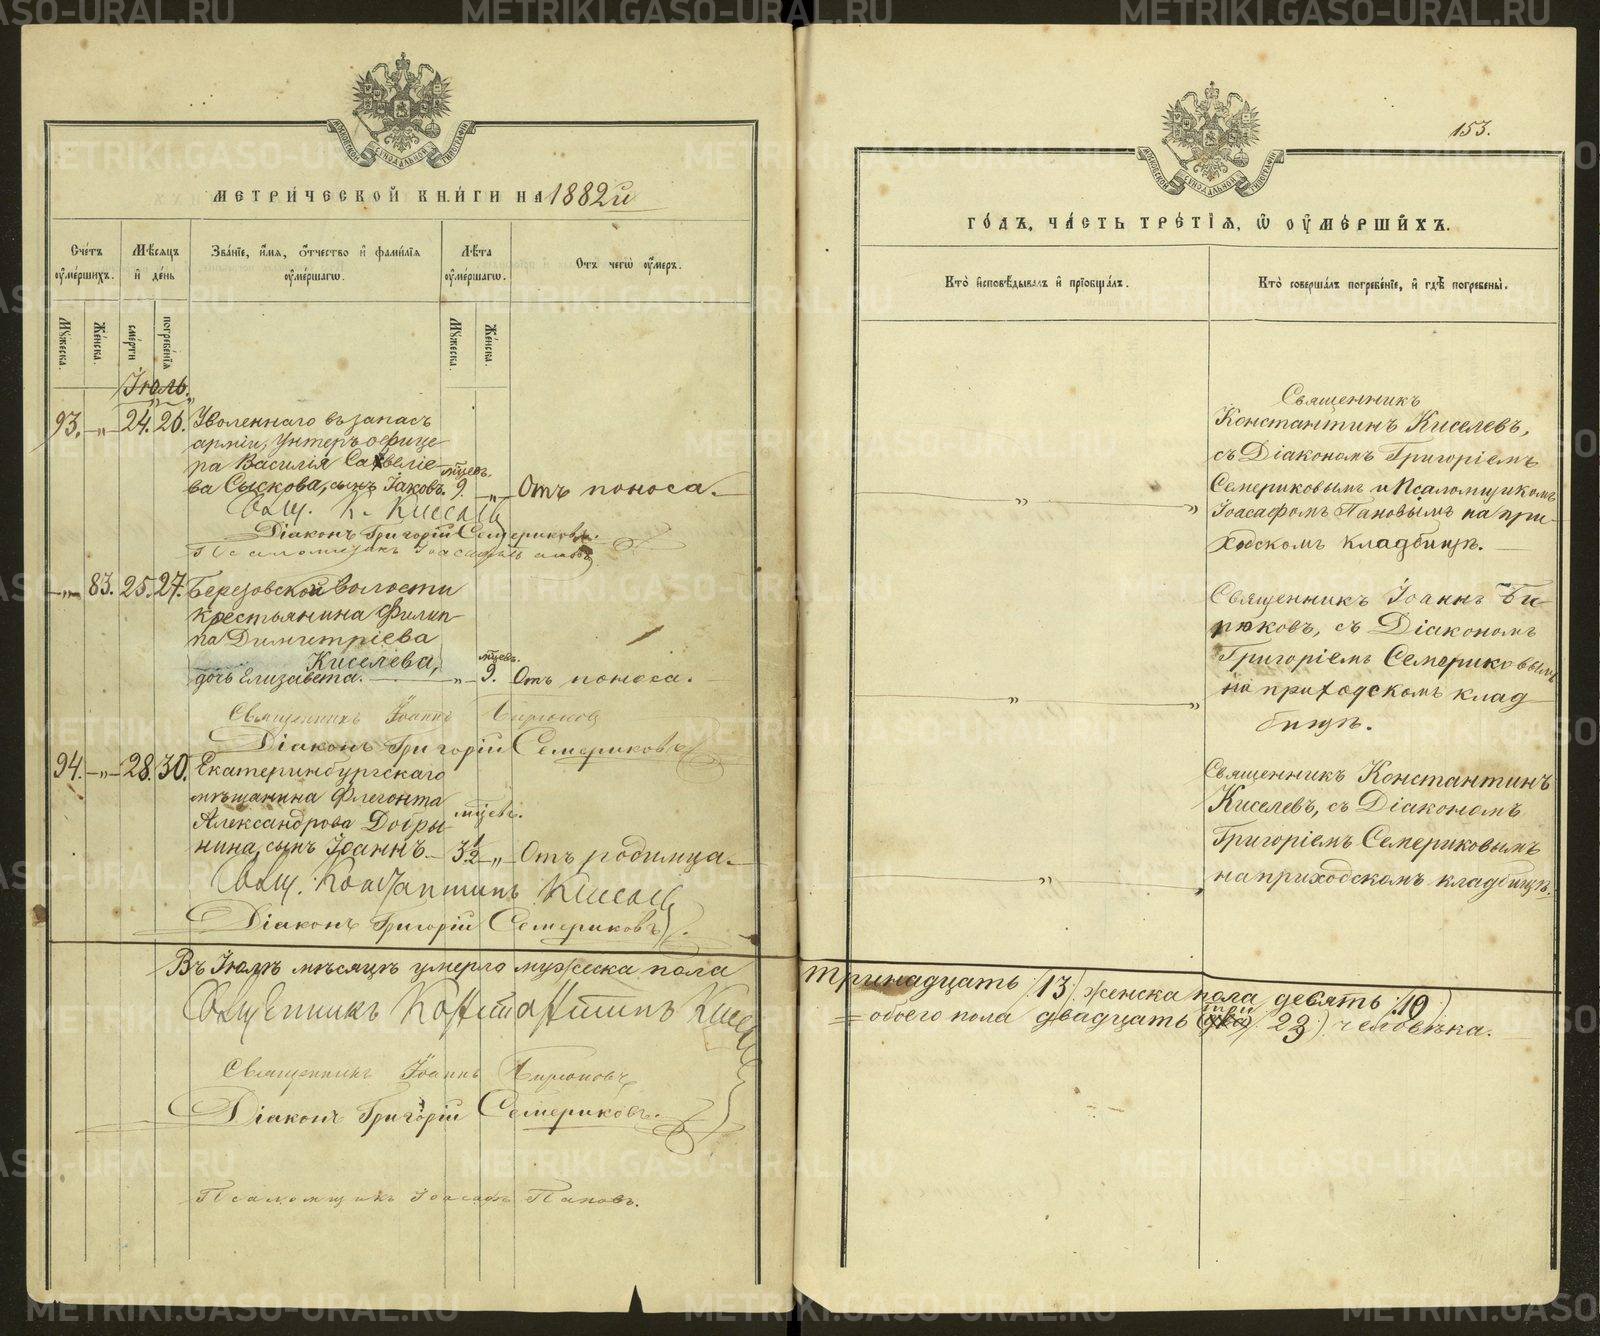 МЕТРИ́ЧЕСКОЙ КНИ́ГИ НА 1882й
Счетъ
ᲂумершихъ.
Мѣсяцъ
и день
Званїе, имя, ᲂтчество и фамилїя
ᲂумершагѡ.
Лѣта
ᲂумершагѡ.
Отъ чегѡ ᲂумеръ.
Мꙋжеска.
Женска.
смерти
погребенїя
Мꙋжеска.
Женска.
Іюль.
93. „ 24. 26. Уволеннаго въ запасъ
арміи, Унтеръ офице-
ра Василія Савеліе-
ва Сыскова, сынъ Іаковъ. мѣсцевъ. 9. „ Отъ поноса.
Свящ. К. Киселевъ
Діаконъ Григорій Семериковъ.
Псаломщикъ Іоасафъ Пановъ
„ 83. 25. 27. Березовской волости
крестьянина Филип-
па Димитріева
Киселева, мѣсцевъ.
дочь Елизавета. „ 9. Отъ поноса.
Священникъ Іоаннъ Бирюковъ
Діаконъ Григорій Семериковъ
94. „ 28. 30. Екатеринбургскаго
мѣщанина Флегонта
Александрова Добры- мѣсцевъ.
нина, сынъ Іоаннъ. 3½ „ Отъ родимца.
Свящ. Константинъ Киселевъ
Діаконъ Григорій Семериковъ
Въ Іюлѣ мѣсяцѣ умерло мужеска пола
Священникъ Константинъ Киселевъ
Священникъ Іоаннъ Бирюковъ
Діаконъ Григорій Семериковъ.
Псаломщикъ Іоасафъ Пановъ.
153.
ГОДЪ, ЧАСТЬ ТРЕТІЯ, Ѡ ОУМЕРШИХЪ.
Кто исповѣдывалъ и прїобщалъ.
Кто совершалъ погребенїе, и гдѣ погребены.
Священникъ
Константинъ Киселевъ,
съ Діакономъ Григоріемъ
Семериковымъ и Псаломщикомъ
„ „ Іоасафомъ Пановымъ на при-
ходскомъ кладбищѣ.
Священникъ Іоаннъ Би-
рюковъ, съ Діакономъ
Григоріемъ Семериковымъ
„ „ на приходскомъ клад
бищѣ.
Священникъ Константинъ
Киселевъ, съ Діакономъ
Григоріемъ Семериковымъ
„ „ на приходскомъ кладбищѣ.
тринадцать /13/, женска пола девять /10/
три
= обоего пола двадцать (два) /23/ человѣка.